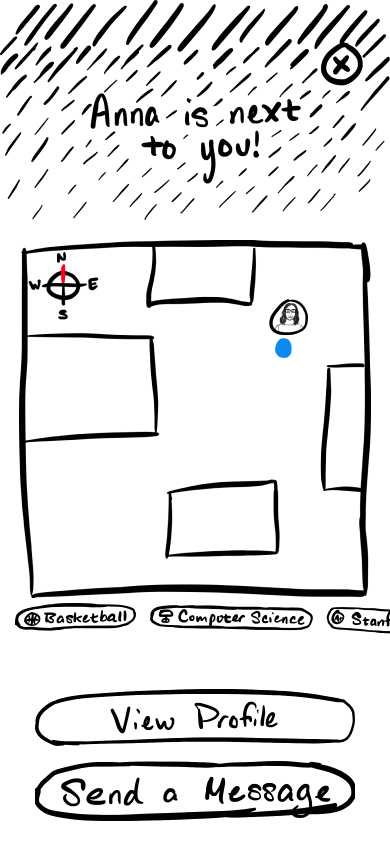 Anna is next
to you!
N
W E
S
Basketball Computer Science Stanf
View Profile
Send a Message